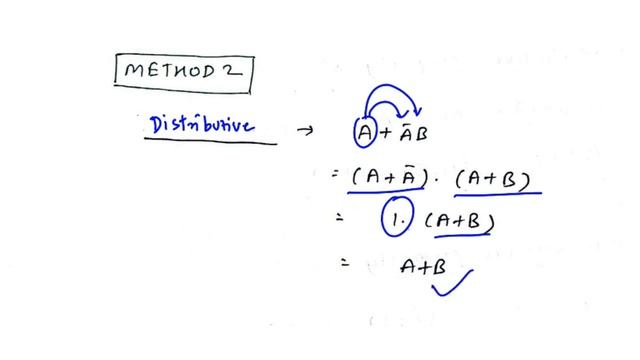 METHOD 2
Distributive → A + ĀB
= (A + Ā) · (A + B)
= 1. (A+B)
= A+B